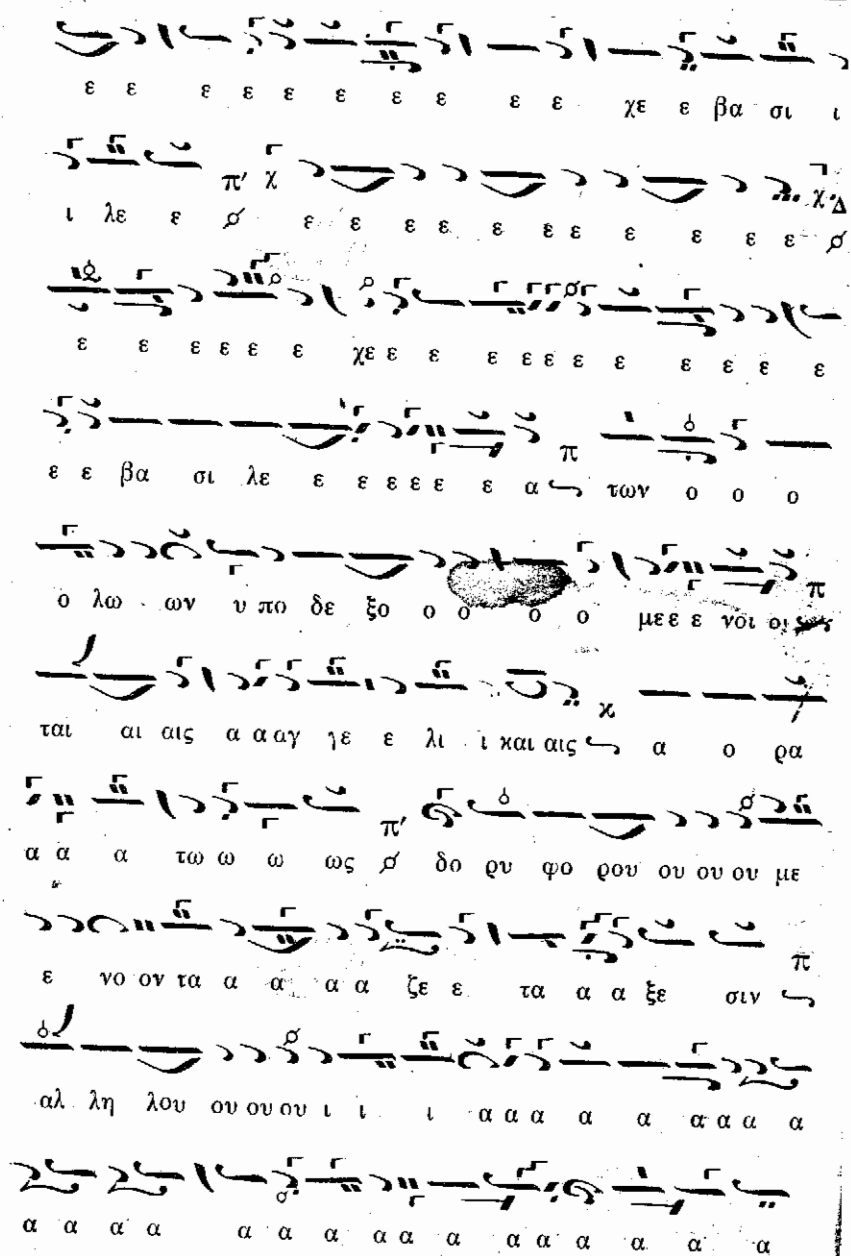 ε ε ε ε ε ε ε ε ε ε χε ε βα σι ι
ι λε ε π' χ ε ε ε ε ε ε ε ε ε ε ε χ Δ
ε ε ε ε ε ε χε ε ε ε ε ε ε ε ε ε ε ε
ε ε βα σι λε ε ε ε ε ε ε α π των ο ο ο
ο λω ων υ πο δε ξο ο ο ο ο με ε ε νοι οι π
ται αι αις α α αγ γε ε λι ι και αις κ α ο ρα
α α α τω ω ω ως π' δο ρυ φο ρου ου ου ου με
ε νο ον τα α α α α ζε ε τα α α ξε σιν π
αλ λη λου ου ου ου ι ι ι α α α α α α α α α
α α α α α α α α α α α α α α α α